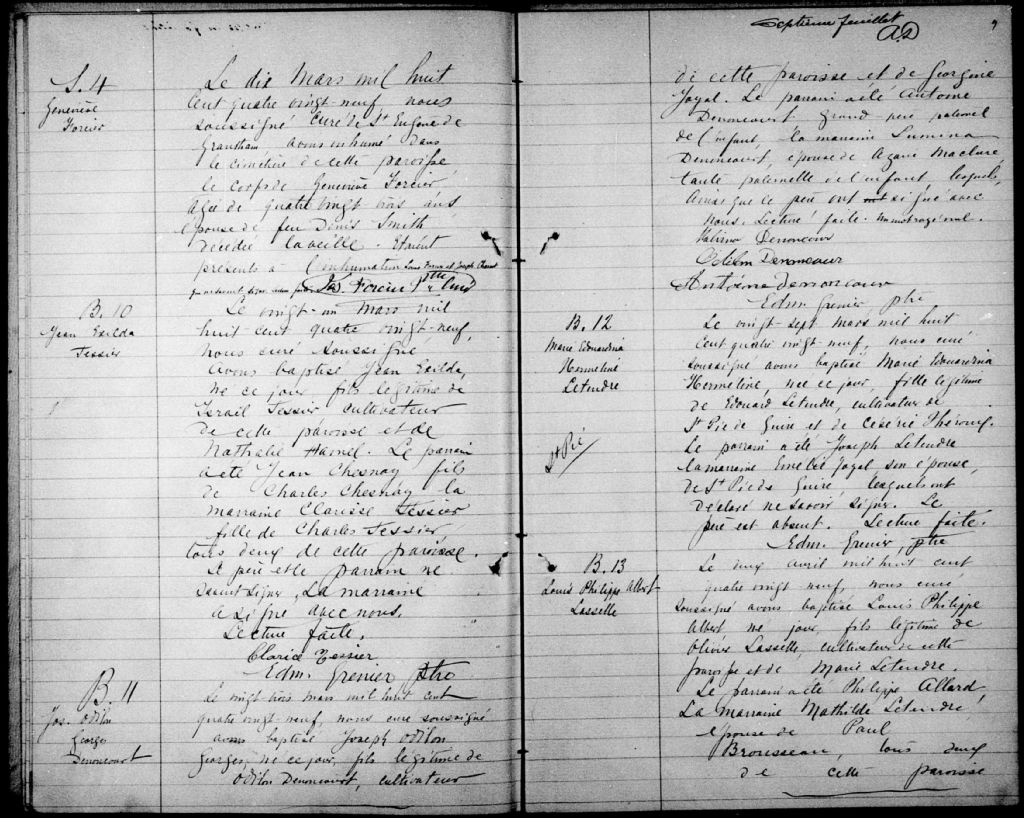 S. 4
Geneviève
Forcier
Le dix Mars mil huit
cent quatre vingt neuf, nous
soussigné Curé de St Eugène de
Grantham avons inhumé dans
le cimetière de cette paroisse
le corps de Geneviève Forcier,
agée de quatre vingt trois ans,
épouse de feu Denis Smith
décédée la veille. Etaient
présents à l'inhumation Louis Forcier et Joseph
Jos Forcier Ptre Curé
B. 10
Jean Exilda
Tessier
Le vingt-un Mars mil
huit cent quatre vingt-neuf,
Nous curé soussigné
avons baptisé Jean Exilda,
né ce jour fils légitime de
Israil Tessier cultivateur
de cette paroisse et de
Nathalie Hamel. Le parrain
a été Jean Chesnay fils
de Charles Chesnay la
marraine Clarisse Tessier
fille de Charles Tessier,
tous deux de cette paroisse.
Le père et le parrain ne
savent signer, La marraine
a signé avec nous.
Lecture faite.
Clarice Tessier
Edm. Grenier ptre
B. 11
Jos. Odilon
Georges
Denoncourt
Le vingt trois mars mil huit cent
quatre vingt-neuf, nous curé soussigné
avons baptisé Joseph Odilon
Georges, né ce jour, fils légitime de
Odilon Denoncourt, cultivateur
Septieme feuillet
A.D
de cette paroisse et de Georgine
Joyal. Le parrain a été Antoine
Denoncourt grand père paternel
de l'enfant, la marraine Lumina
Denoncourt, épouse de Azarie Maclure,
tante paternelle de l'enfant, lesquels,
ainsi que le père ont signé avec
nous. Lecture faite.
Denoncour
Odilon Denoncour
Antoine denoncour
Edm. Grenier ptre
B. 12
Marie Edouardina
Hermeline
Letendre
St Pié
Le vingt-sept Mars mil huit
cent quatre vingt neuf, nous curé
soussigné avons baptisé Marie Edouardina
Hermeline, née ce jour, fille légitime
de Edouard Letendre, cultivateur de
St Pie de Guire et de Césérie Théroux.
Le parrain a été Joseph Letendre
la marraine Emélie Joyal son épouse,
de St Pie de Guire, lesquels ont
déclaré ne savoir signer. Le
père est absent. Lecture faite.
Edm. Grenier, ptre
B. 13
Louis Philippe Albert
Lasselle
Le avril mil huit cent
quatre vingt neuf, nous curé
soussigné avons baptisé Louis Philippe
Albert né jour, fils légitime de
Olivier Lasselle, cultivateur de cette
paroisse et de Marie Letendre.
Le parrain a été Philippe Allard,
La Marraine Mathilde Letendre,
épouse de Paul
Brousseau, tous deux
de cette paroisse